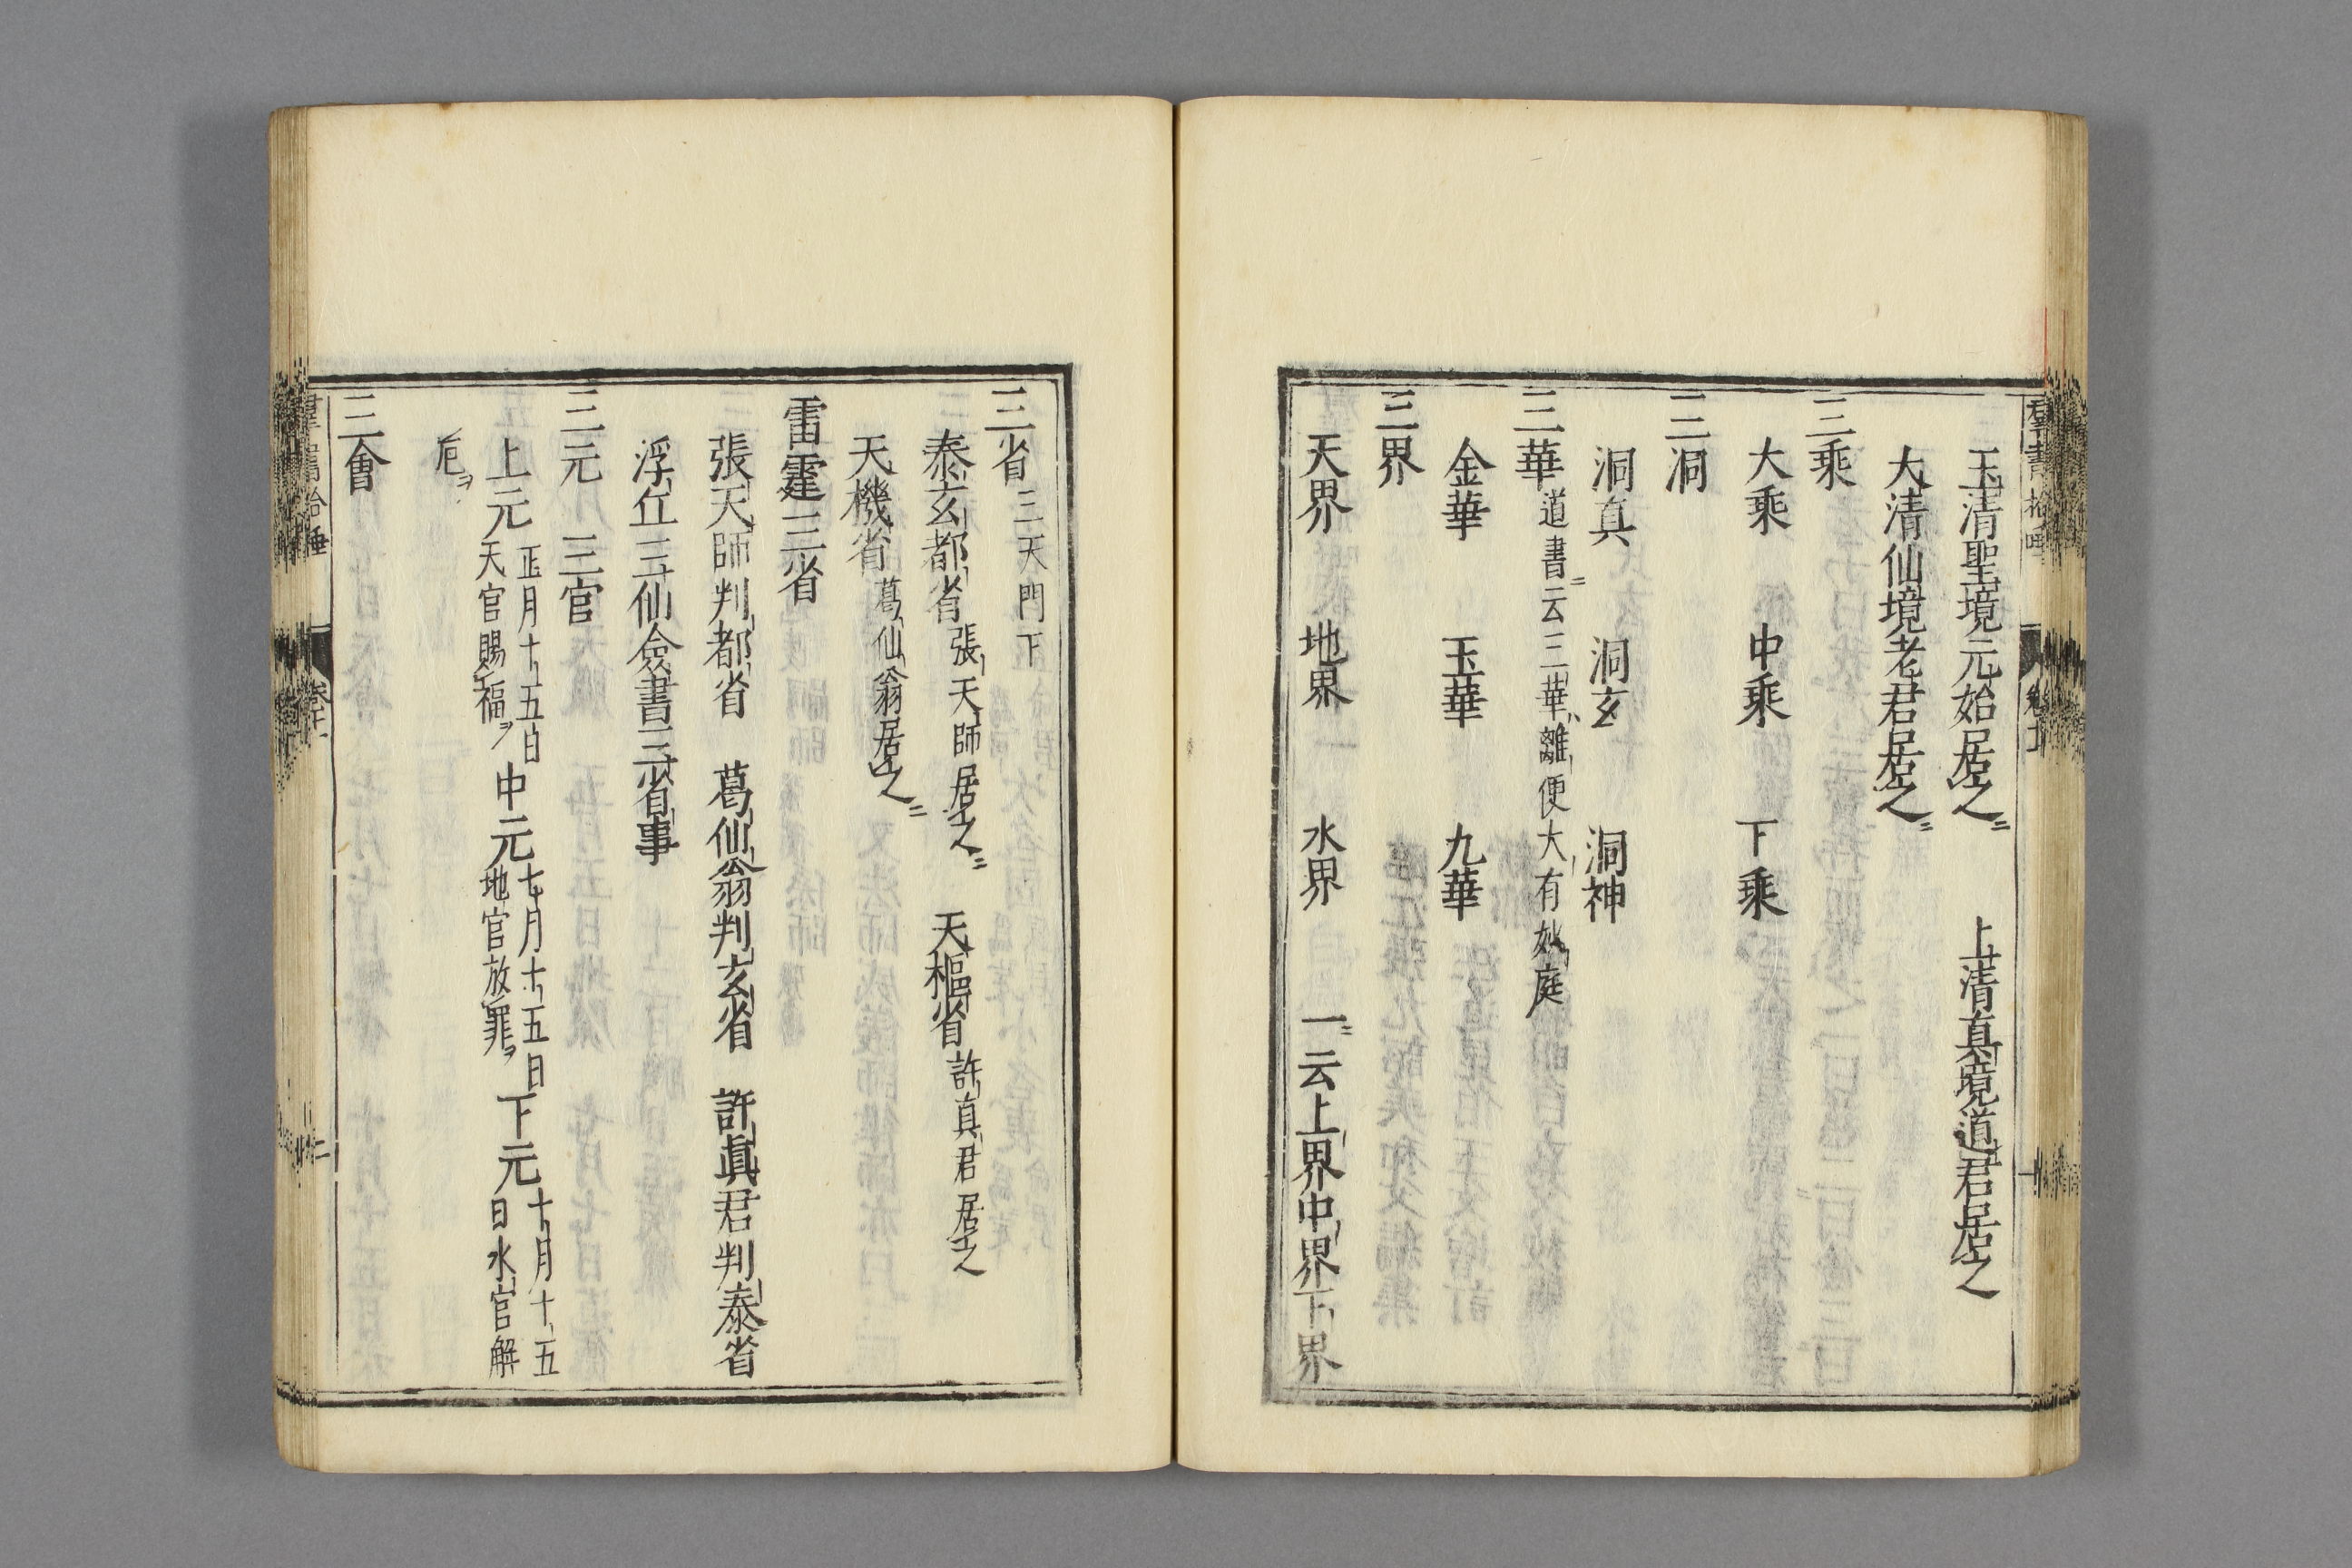 玉清聖境元始居之　上清真境道君居之
太清仙境老君居之
三乘
大乘　中乘　下乘
三洞
洞真　洞玄　洞神
三華道書云三華離便大有妙庭
金華　玉華　九華
三界
天界　地界　水界　一云上界中界下界
三省三天門下
泰玄都省張天師居之　天樞省許真君居之
天機省葛仙翁居之
雷霆三省
張天師判都省　葛仙翁判玄省　許真君判泰省
浮丘三仙僉書三省事
三元　三官
上元正月十五日天官賜福中元七月十五日地官放罪下元十月十五日水官解
厄
三會